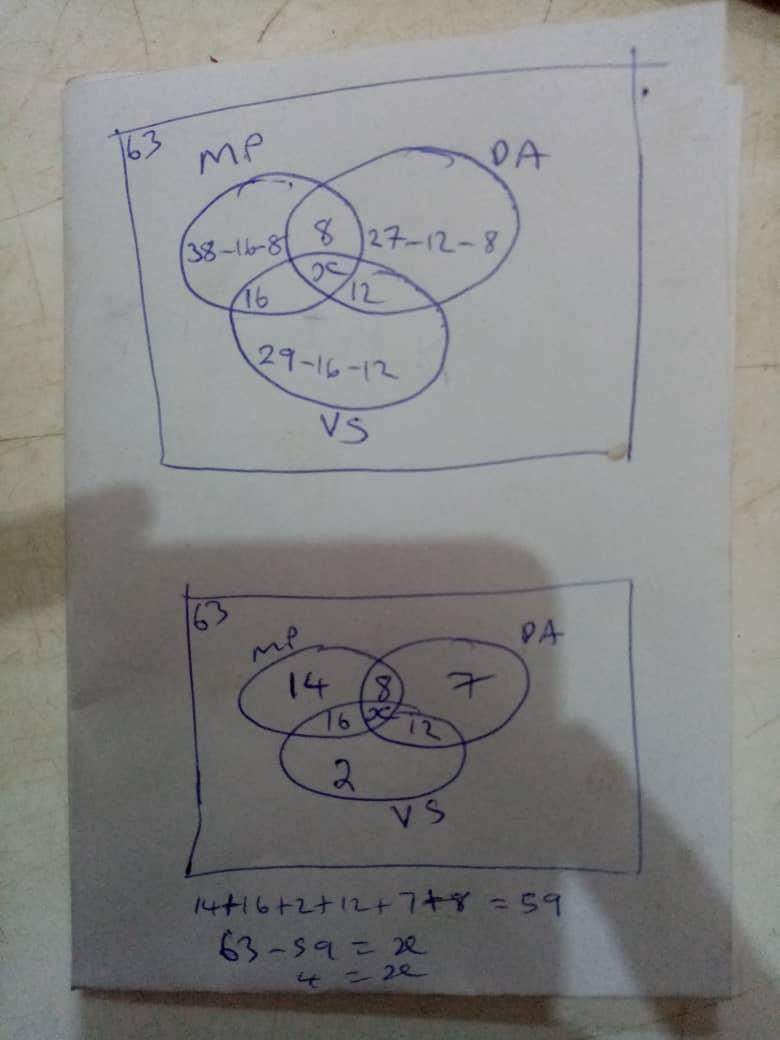 63
MP
DA
38-16-8
8
27-12-8
x
16
12
29-16-12
VS
63
MP
DA
14
8
7
16
x
12
2
VS
14+16+2+12+7+8 = 59
63-59 = x
4 = x